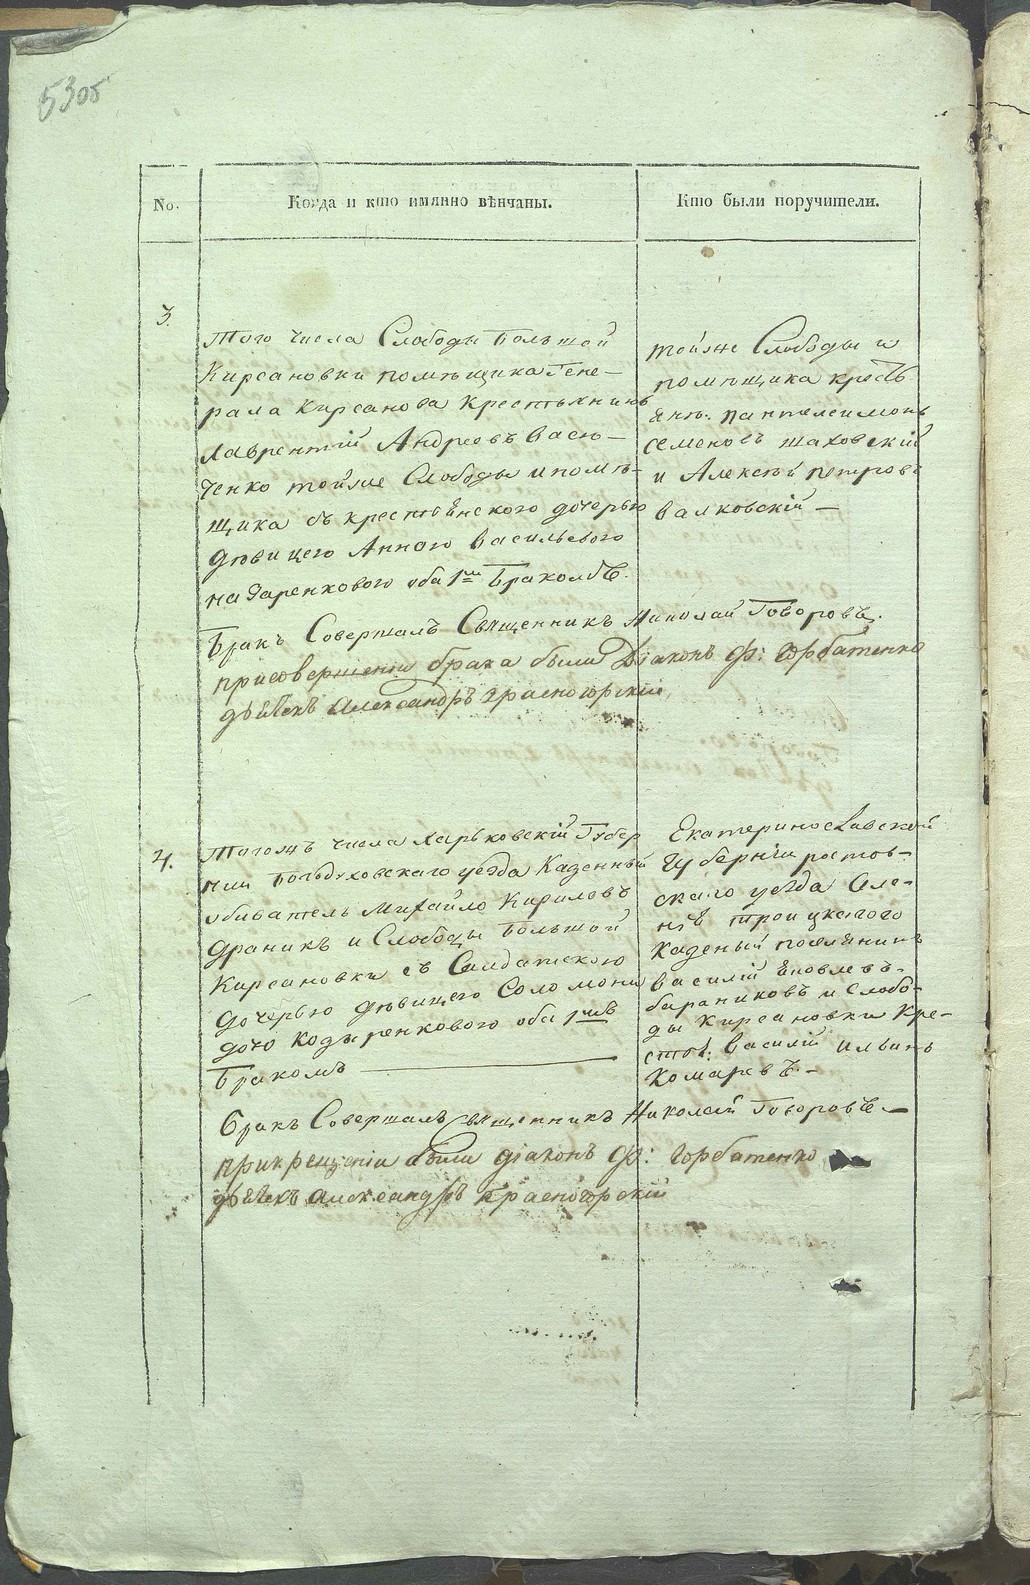 5305
No.
Когда и кто имянно вѣнчаны.
Кто были поручители.
3.
Того числа Слободы Большой
Кирсановки помѣщика Гене-
рала Кирсанова Крестьянинъ
Лаврентій Андреевъ Васю-
ченко тойже Слободы и помѣ-
щика съ крестьянского дочерью
дѣвицею Анною Васильевою
оба 1мъ Бракомъ.
тойже Слободы и
помѣщика крестья
яне: Пантелеимонъ
Семеновъ Шаховскій
и Алексѣй Петровъ
Валковскій —
Бракъ Совершалъ Священникъ Николай Говоровъ.
присовершеніи брака были Діаконъ Ф: Горбатенко
дьячекъ Александръ Красногорскій
4.
Тогожъ числа Харьковскій Губер
ніи Богодуховскаго уезда Казенный
обиватель Михайло Кириловъ
Драникъ и Слободы Большой
Кирсановки съ Салдатскою
дочерью дѣвицею Соломони
дою Кодыренковою оба 1мъ
Бракомъ —
Екатеринославской
Губерніи ростов-
скаго уезда Селе-
нія Троицкагого
Казеный поселянинъ
Василій Яковлевъ
бараниковъ и Слобо-
ды Кирсановки Кре-
стья: Василій Ильинъ
Комаревъ. —
Бракъ Совершалъ Священникъ Николай Говоровъ —
прикрещеніи были діаконъ Ф: Горбатенко
дьячекъ Александръ Красногорскій